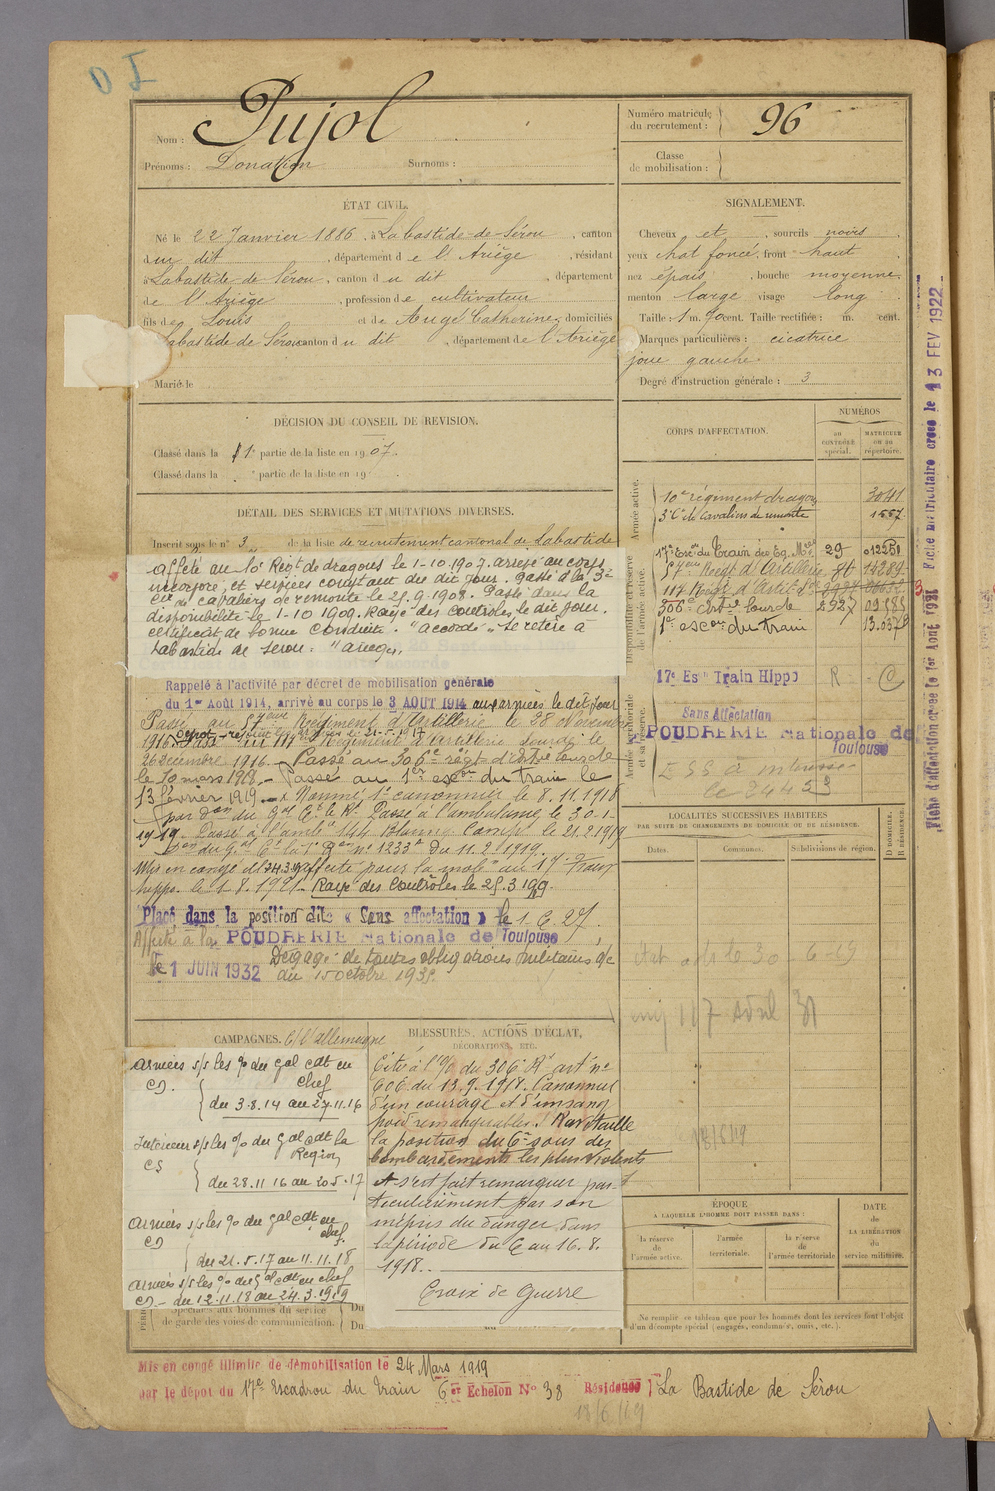 Nom : Pujol
Prénoms : Donatien Surnoms :
Numéro matricule du recrutement : 96
Classe de mobilisation :
ÉTAT CIVIL.
Né le 22 Janvier 1886, à Labastide-de-Sérou, canton
du dit, département de l'Ariège, résidant
à Labastide-de-Sérou, canton du dit, département
de l'Ariège, profession de cultivateur
fils de Louis et de Augé Catherine, domiciliés
Labastide de Sérou canton du dit, département de l'Ariège
Marié le
SIGNALEMENT.
Cheveux et, sourcils noirs
yeux chat foncé, front haut
nez épais, bouche moyenne
menton large visage long
Taille : 1 m. 70 cent. Taille rectifiée : m. cent.
Marques particulières : cicatrice
joue gauche.
Degré d'instruction générale : 3
DÉCISION DU CONSEIL DE REVISION.
Classé dans la 1e partie de la liste en 1907.
Classé dans la partie de la liste en 19
DÉTAIL DES SERVICES ET MUTATIONS DIVERSES.
Inscrit sous le n° 3 de la liste de recrutement cantonal de Labastide
Affété au 10e Régt de dragons le 1-10-1907. arrivé au corps
incorporé, et services comptant du dit jour. Passé à la 3e
Cie de cavaliers de remonte le 25.9-1908. Passé dans la
disponibilité le 1-10 1909. Rayé des contrôles le dit jour.
Certificat de bonne conduite. "accordé" se retire à
Labastide de Serou. "Ariège.
Rappelé à l'activité par décret de mobilisation générale
du 1er Août 1914, arrivé au corps le 3 AOUT 1914 aux armées le dit jour
Passé au 57ème Régiment d'Artillerie le 28 Novembre
1916. Passé au 117e Régiment d'Artillerie lourde le
26 décembre 1916. Passé au 306e régt d'Artrie lourde
le 10 mars 1918. Passé au 1er escon du train le
13 février 1919. Nommé 1er canonnier le 8.11.1918
1919. Passé à l'amb. 144 le 21.2.1919
Don du Gal Ct la 1e Don n° 1233 du 11.2.1919.
Mis en congé ill 24.3.19 affecté pour la mob. au 17e Train
hippo. le 1.8.1921. Rayé des contrôles le 25.3.1919.
Placé dans la position dite « Sans affectation » le 1.6.27.
Affecté à la POUDRERIE Nationale de Toulouse
le 1 JUIN 1932 Dégagé de toutes obligations militaires
du 15 octobre 1935.
CORPS D'AFFECTATION.
NUMÉROS
au contrôle spécial.
matricule ou au répertoire.
Armée active.
10e régiment dragons 3041
3e Cie de Cavaliers de remonte 1557
Disponibilité et réserve de l'armée active.
17e Escon du Train des Eq. Mres 29 01225
57ème Régt d'Artillerie 86 14289
117 Régt d'Artie
306e Artie lourde 2927 09583
1er escon du train 13.037
Armée territoriale et sa réserve.
17e Esn Train Hippo R C
Sans Affectation
POUDRERIE Nationale de
Toulouse
LOCALITÉS SUCCESSIVES HABITÉES
PAR SUITE DE CHANGEMENTS DE DOMICILE OU DE RÉSIDENCE.
Dates. Communes. Subdivisions de région. D DOMICILE. R RÉSIDENCE.
CAMPAGNES. C/ l'allemagne
Armées s/s les % du Gal cdt en
chef
CD.
du 3.8.14 au 27.11.16
Intérieur s/s les % du Gal cdt la
Région
CS
du 28.11 16 au 20 5.17
Armées s/s les % du Gal cdt en
chef.
CD
du 21.5.17 au 11.11.18
Armées s/s les % du Gal cdt en chef
CD - du 12.11.18 au 24.3.1919
Spéciales aux hommes du service
de garde des voies de communication.
Du
Du
BLESSURES, ACTIONS D'ÉCLAT,
DÉCORATIONS, ETC.
Cité à l'% du 306e Rt art n°
606 du 13.9.1918. Canonnier
d'un courage et d'un sang
froid remarquables. Ravitaille
la position du 6e sous des
bombardements les plus violents
et s'est fait remarquer par
ticulièrement par son
mépris du danger dans
la période du 6 au 16.8.
1918.
Croix de Guerre
ÉPOQUE
A LAQUELLE L'HOMME DOIT PASSER DANS :
la réserve de l'armée active.
l'armée territoriale.
la réserve de l'armée territoriale
DATE de LA LIBÉRATION du service militaire.
Ne remplir ce tableau que pour les hommes dont les services font l'objet
d'un décompte spécial (engagés, condamnés, omis, etc.).
Mis en congé illimité de démobilisation le 24 Mars 1919
par le dépôt du 17e Escadron du Train 6er Echelon N° 38 Résidence La Bastide de Sérou
18/6/19
Fiche d'affectation créée le 1er Août 1921 Fiche matriculaire créée le 13 FEV 1922